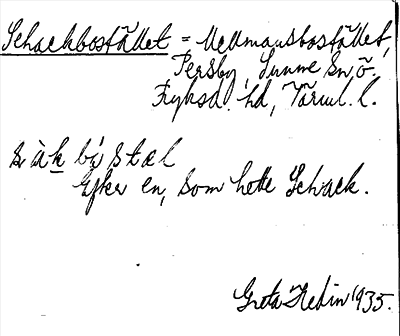 Schackbostället = Mellmansbostället,
Persby, Sunne Sn, ö.
Fryksd. hd, Värml. l.
s à k bå stæl
Efter en, som hette Schack.
Greta Hedin 1935.